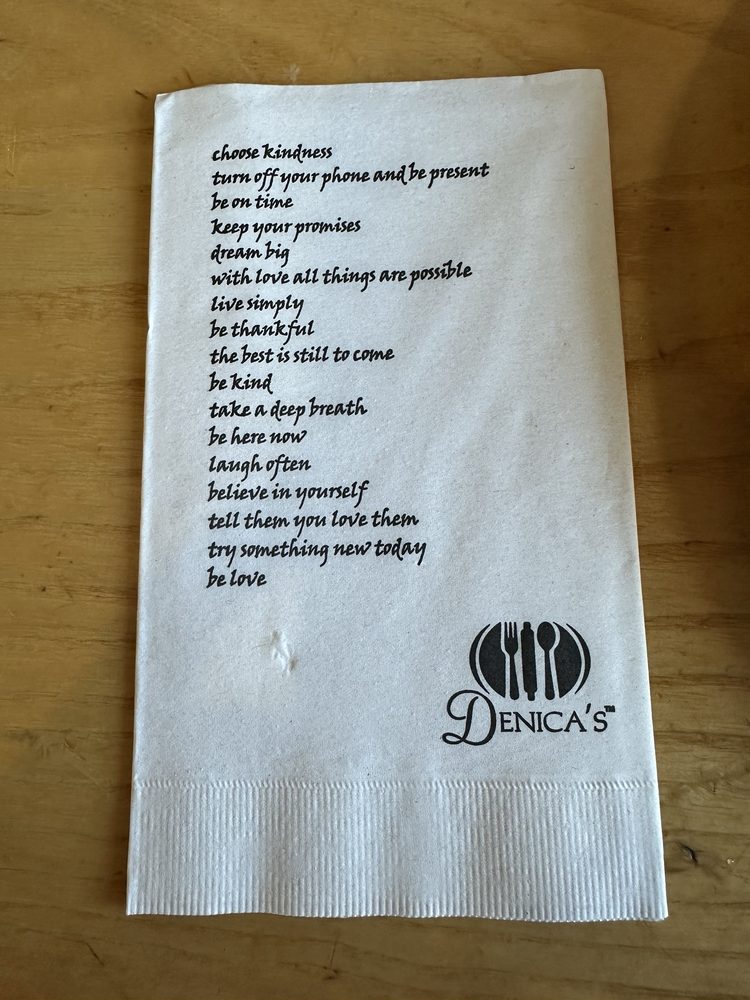 choose kindness
turn off your phone and be present
be on time
keep your promises
dream big
with love all things are possible
live simply
be thankful
the best is still to come
be kind
take a deep breath
be here now
laugh often
believe in yourself
tell them you love them
try something new today
be love
DENICA'S™